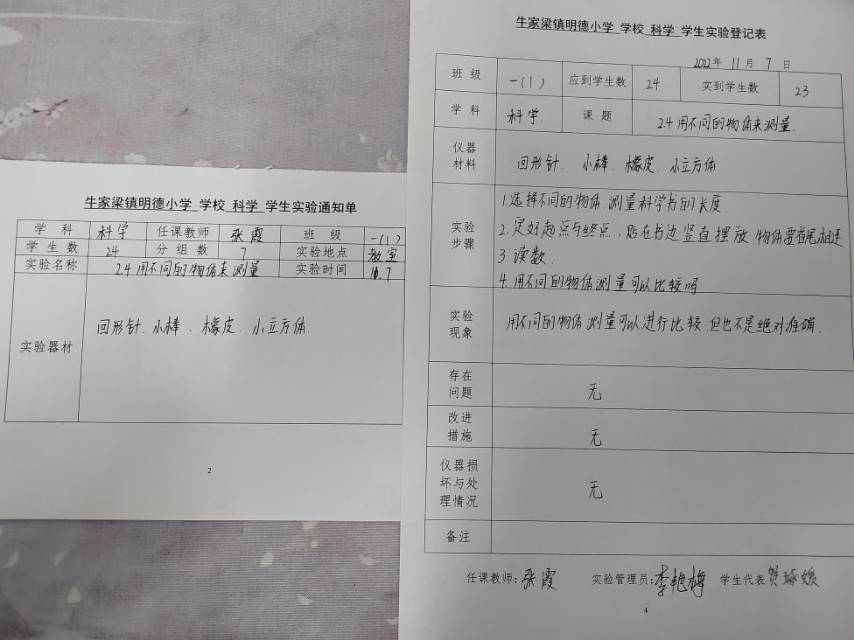 牛家梁镇明德小学 学校 科学 学生实验通知单
学 科 科学 任课教师 张霞 班 级 一(1)
学 生 数 24 分 组 数 7 实验地点 教室
实验名称 2.4用不同的物体来测量 实验时间
实验器材 回形针、小棒、橡皮、小立方体.
2
牛家梁镇明德小学 学校 科学 学生实验登记表
2022年 11月 7日
班 级 一(1) 应到学生数 24 实到学生数 23
学 科 科学 课 题 2.4用不同的物体来测量.
仪器
材料
回形针、小棒、橡皮、小立方体
实验
步骤
1.选择不同的物体,测量科学书的长度.
2.定好起点与终点,贴在书边竖直摆放,物体需首尾相连
3 读数.
4.用不同的物体测量可以比较吗
实验
现象
用不同的物体测量可以进行比较,但也不是绝对准确.
存在
问题
无
改进
措施
无
仪器损
坏与处
理情况
无
备注
任课教师:张霞 实验管理员:李艳梅 学生代表
4